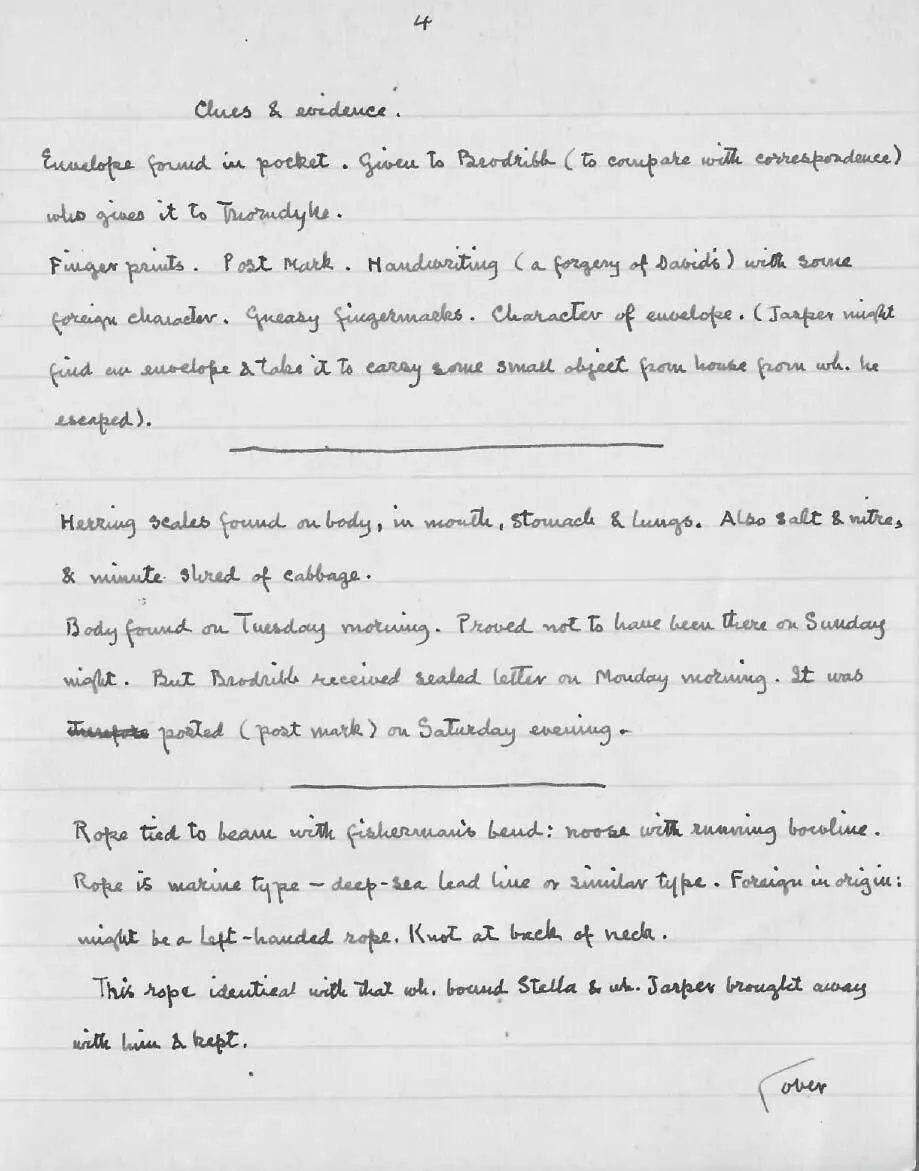 4
Clues & evidence.
Envelope found in pocket. Given to Brodribb (to compare with correspondence)
who gives it to Thorndyke.
Finger prints. Post Mark. Handwriting (a forgery of David's) with some
foreign character. Greasy fingermarks. Character of envelope. (Jasper might
find an envelope & take it to carry some small object from house from wh. he
escaped).
Herring scales found on body, in mouth, stomach & lungs. Also salt & nitre,
& minute shred of cabbage.
Body found on Tuesday morning. Proved not to have been there on Sunday
night. But Brodribb received sealed letter on Monday morning. It was
therefore posted (post mark) on Saturday evening.
Rope tied to beam with fisherman's bend: noose with running bowline.
Rope is marine type – deep-sea lead line or similar type. Foreign in origin:
might be a left-handed rope. Knot at back of neck.
This rope identical with that wh. bound Stella & wh. Jasper brought away
with him & kept.
over